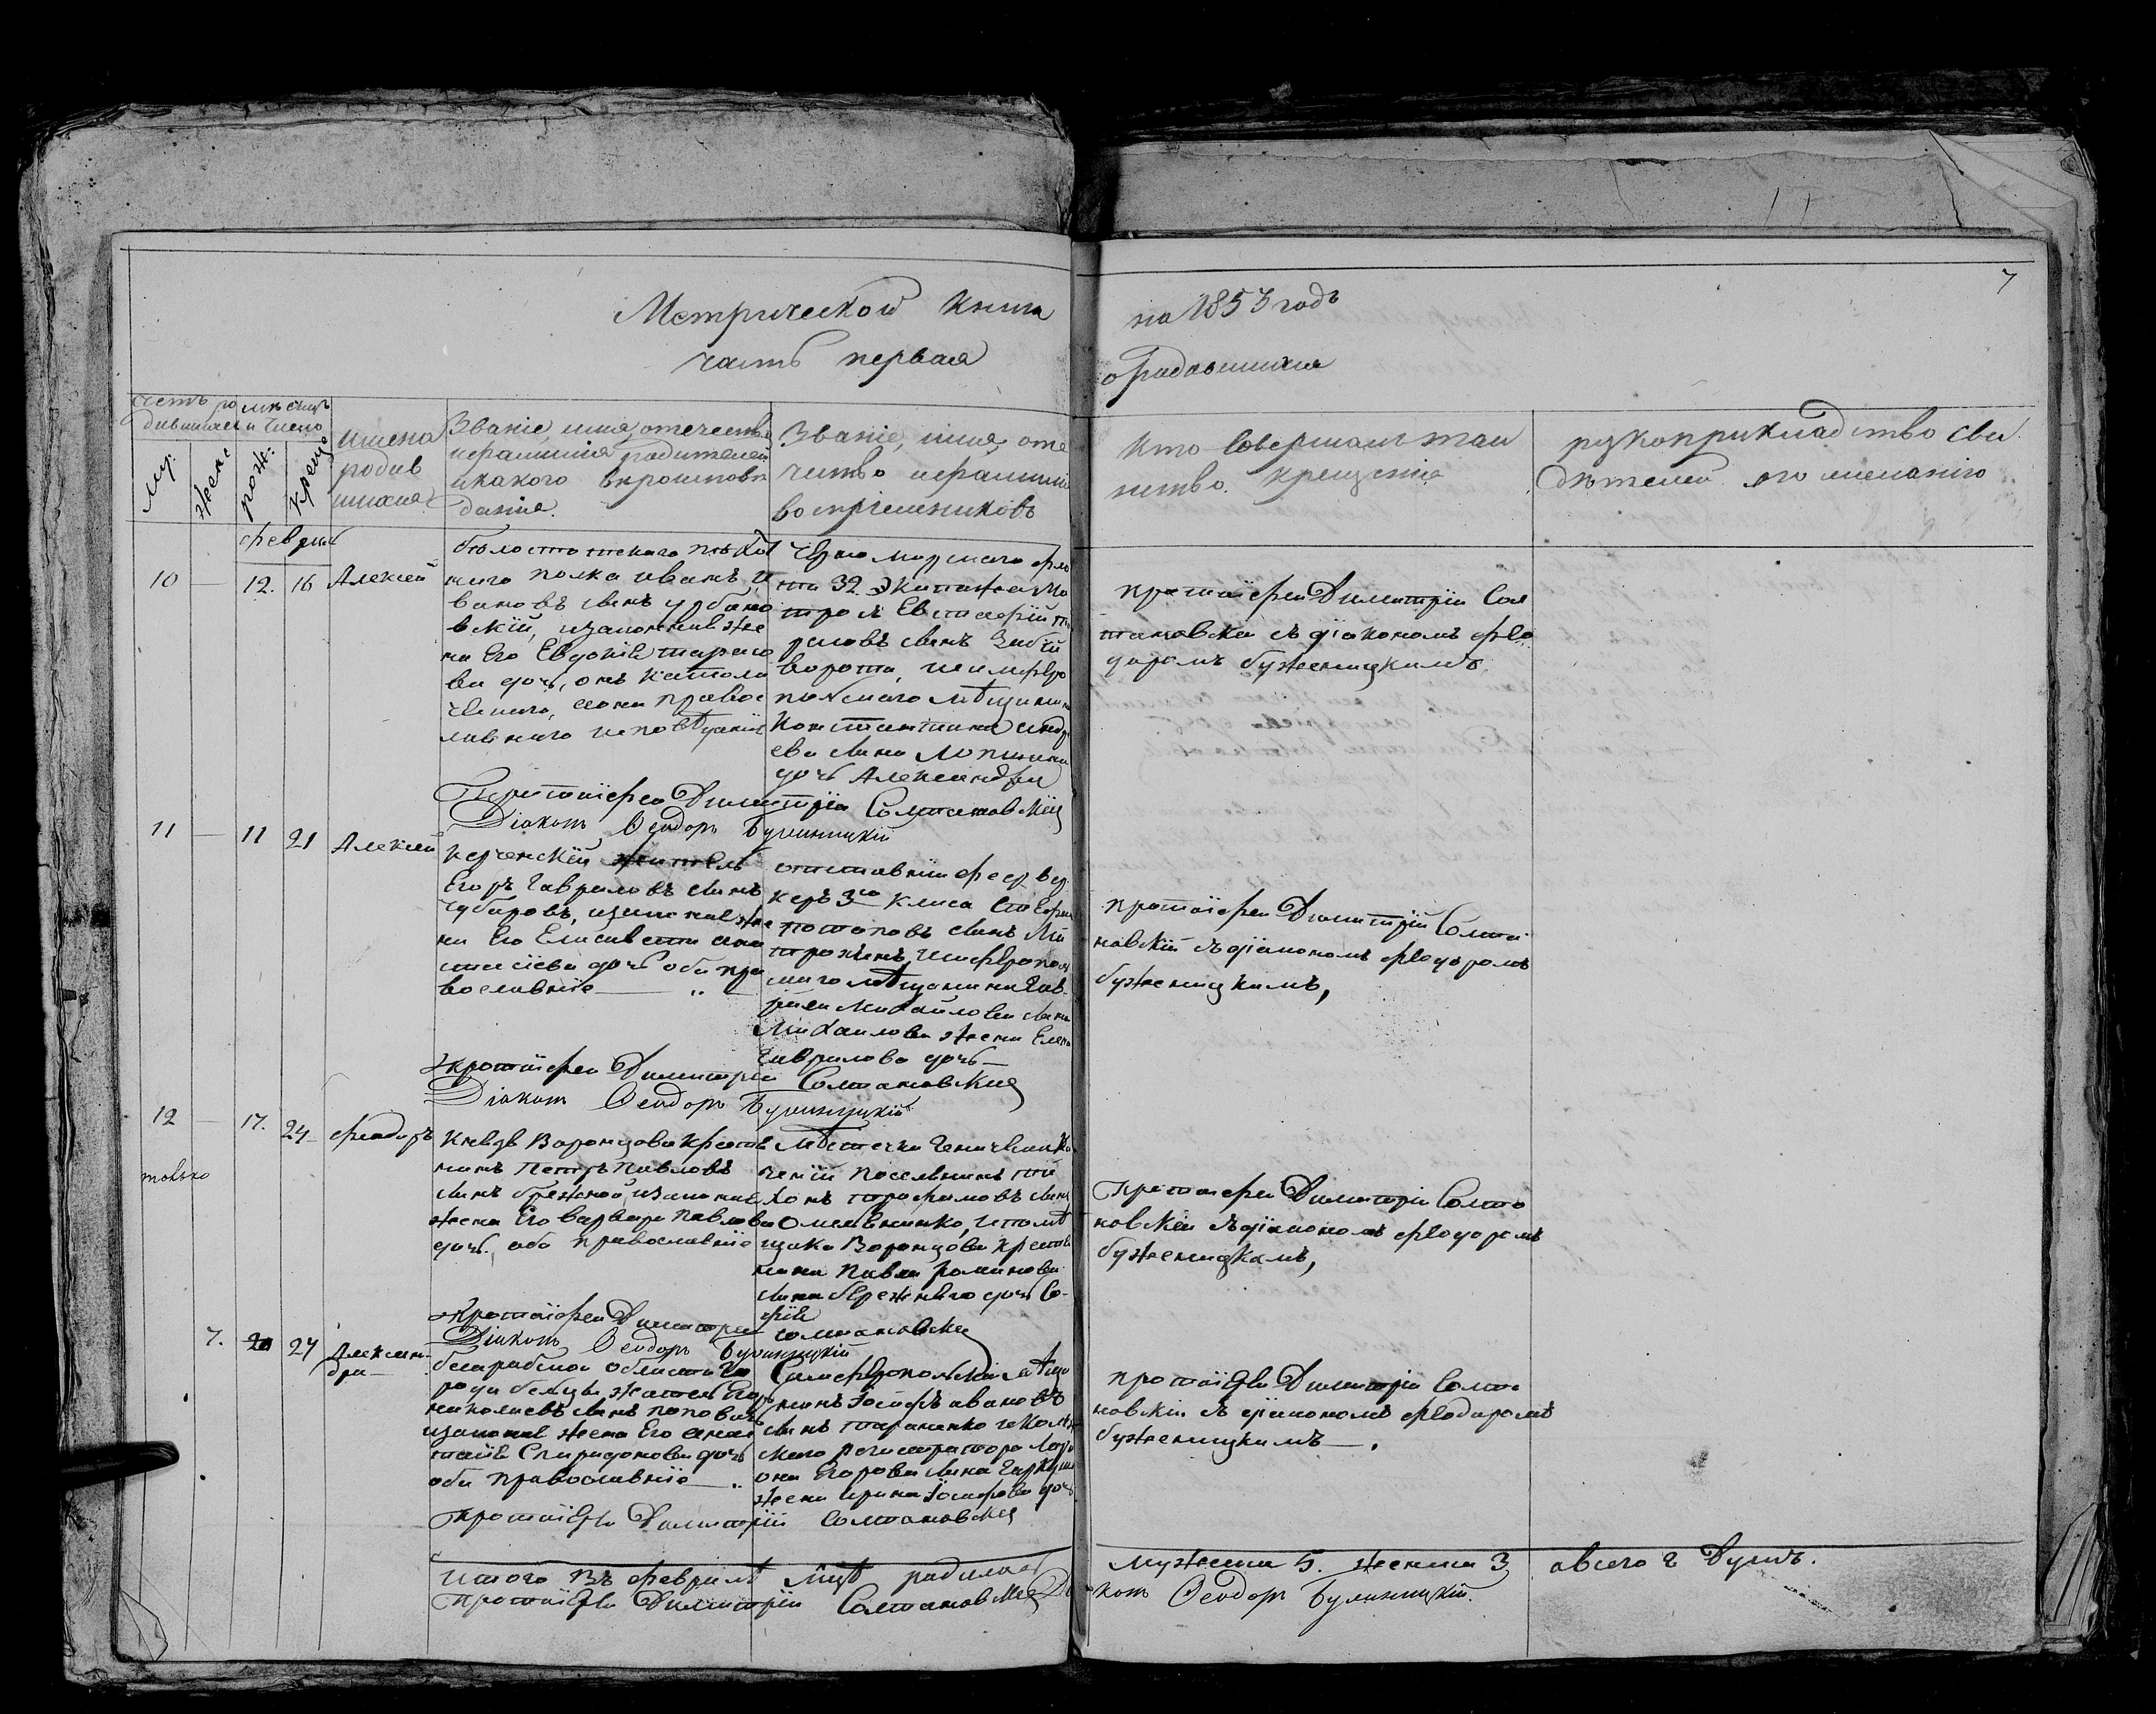 7
Метрической книги
на 1853 годъ
часть первая
о родившихся
счетъ ро
дившихся
мѣсяцъ
и число
муж:
женс
рож:
креще
имена
родив
шихся
Званіе, имя, отечество
ифамилія родителей
икакого вѣроисповѣ
данія.
Званіе, имя, оте
чество ифамилія
воспріемниковъ
кто совершалъ таи
нство. крещенія
рукоприкладство сви
дѣтелей. по желанію
февраль
10 — 12. 16 Алексѣй
бѣлостотскаго пѣхот
наго полка иванъ и
вановъ синъ урбано
вскій, изаконная же
на Его Евдокія тарасо
ва дочь, онъ католи
ческаго, аона правос
лавнаго исповѣданія
Черно морскаго фло
та 32 Экипажа ма
тросъ Евстафій
синъ Забій
ворота, исимферо
польскаго мѣщанина
Константина андр
ева сина Лопинина
дочь Александра
протоіерей Димитрій Сол
тановскій съ діакономъ фео
доромъ буженицкимъ
Протоіерей Димитрій Солтановскій
Діаконъ Ѳеодоръ Бужиницкій
11 — 11 21 Алексѣй
керченскій житель
Егоръ Гавриловъ синъ
Чубаровъ, изаконная же
на Его Елисавета анас
тасіева дочь оба пра
вославніе —
отставній феерве
керъ 3го класа Стефанъ
потаповъ синъ Ми
трохинъ, исимферополь
скаго мѣщанина Гав
рила Михайлова сина
Михаилова жена Елена
Гаврилова дочь —
протоіерей Димитрій Солта
новскій съ діакономъ феодоромъ
буженицкимъ,
протоіерей Димитрій Солтановскій
Діаконъ Ѳеодоръ Бужиницкій
12 — 17. 24 — феодоръ
только
Князя Воронцова крестья
нинъ Петръ Павловъ
синъ бережной, изаконная
жена Его Варвара Павлова
дочь. оба православніе
Мѣстечка Геническа
поселянинъ ти
хонъ трофимовъ синъ
Омельченко, ипомѣ
щика Воронцова крестья
нина Павла романова
сина бережнаго дочь Со
фія
Протоіерей Димитрій Солта
новскій съ діакономъ феодоромъ
буженицкимъ,
Протоіерей Димитрій Солтановскій
Діаконъ Ѳеодоръ Бужиницкій
7. 20 24 Алексан-
дра —
бесарабской области го
рода бельцы, житель Егоръ
николаевъ синъ поповичъ
изаконная жена Его анас
тасія Спиридонова дочь
оба православніе —
Симферопольскій мѣща
нинъ Іосифъ ивановъ
синъ тараненко иколеж
скаго регистратора
Егорова сина
жена ирина Іосифова дочь
протоіерей Димитрій Солта
новскій съ діакономъ феодоромъ
буженицкимъ —.
Протоіерей Димитрій Солтановскій
итого въ февралѣ мцѣ родилось
мужеска 5. женска 3 авсего 8 душъ.
Протоіерей Димитрій Солтановскій Діа
конъ Ѳеодоръ Бужиницкій.